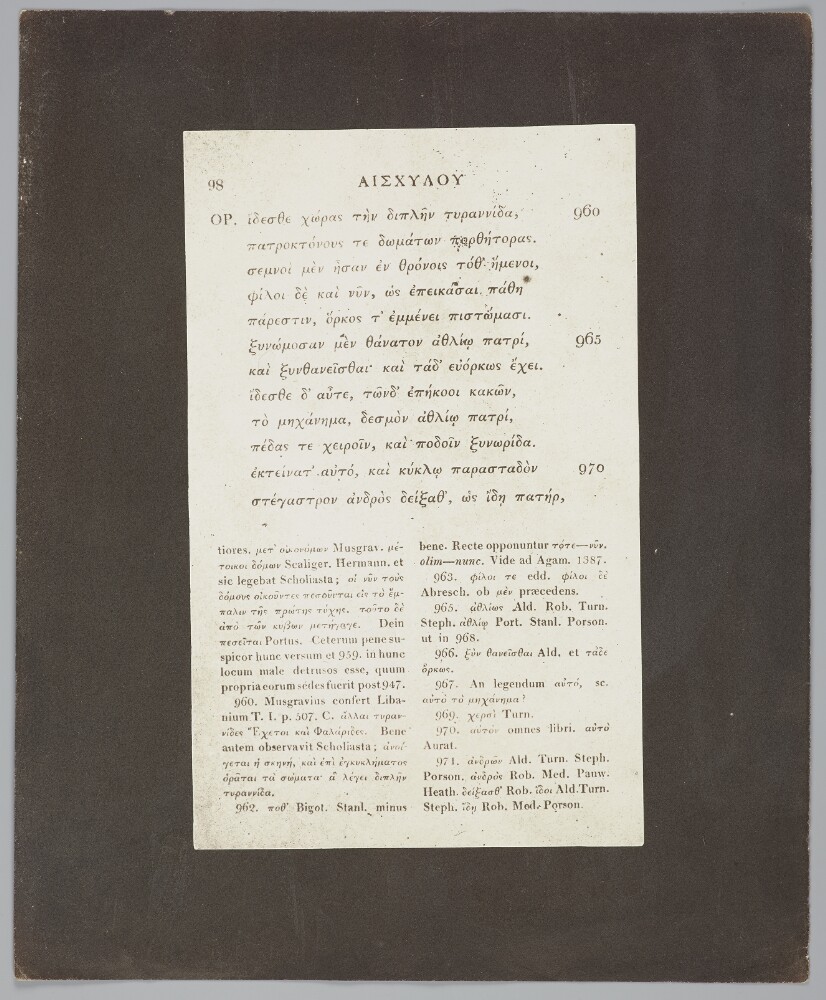 98
ΑΙΣΧΥΛΟΥ
ΟΡ. ἴδεσθε χώρας τὴν διπλῆν τυραννίδα, 960
πατροκτόνους τε δωμάτων πορθήτορας.
σεμνοὶ μὲν ἦσαν ἐν θρόνοις τόθ' ἥμενοι,
φίλοι δὲ καὶ νῦν, ὡς ἐπεικάσαι πάθη
πάρεστιν, ὅρκος τ' ἐμμένει πιστώμασι.
ξυνώμοσαν μὲν θάνατον ἀθλίῳ πατρί, 965
καὶ ξυνθανεῖσθαι· καὶ τάδ' εὐόρκως ἔχει.
ἴδεσθε δ' αὖτε, τῶνδ' ἐπήκοοι κακῶν,
τὸ μηχάνημα, δεσμὸν ἀθλίῳ πατρί,
πέδας τε χειροῖν, καὶ ποδοῖν ξυνωρίδα.
ἐκτείνατ' αὐτό, καὶ κύκλῳ παρασταδὸν 970
στέγαστρον ἀνδρὸς δείξαθ', ὡς ἴδῃ πατήρ,
tiores. μετ' οἰκονόμων Musgrav. μέ-
τοικοι δόμων Scaliger. Hermann. et
sic legebat Scholiasta; οἱ νῦν τοὺς
δόμους οἰκοῦντες πεσοῦνται εἰς τὸ ἔμ-
παλιν τῆς πρώτης τύχης. τοῦτο δὲ
ἀπὸ τῶν κύβων μετήγαγε. Dein
πεσεῖται Portus. Ceterum pene su-
spicor hunc versum et 959. in hunc
locum male detrusos esse, quum
propria eorum sedes fuerit post 947.
960. Musgravius confert Liba-
nium T. I. p. 507. C. ἄλλαι τυραν-
νίδες Ἔχετοι καὶ Φαλάριδες. Bene
autem observavit Scholiasta; ἀνοί-
γεται ἡ σκηνή, καὶ ἐπὶ ἐγκυκλήματος
ὁρᾶται τὰ σώματα· ἃ λέγει διπλῆν
τυραννίδα.
962. ποθ' Bigot. Stanl. minus
bene. Recte opponuntur τότε—νῦν.
olim—nunc. Vide ad Agam. 1387.
963. φίλοι τε edd. φίλοι δὲ
Abresch. ob μὲν præcedens.
965. ἀθλίως Ald. Rob. Turn.
Steph. ἀθλίῳ Port. Stanl. Porson.
ut in 968.
966. ξὺν θανεῖσθαι Ald. et τάδε
ὅρκως.
967. An legendum αὐτό, sc.
αὐτὸ τὸ μηχάνημα?
969. χερσὶ Turn.
970. αὐτὸν omnes libri. αὐτὸ
Aurat.
971. ἀνδρῶν Ald. Turn. Steph.
Porson. ἀνδρὸς Rob. Med. Pauw.
Heath. δείξασθ' Rob. ἴδοι Ald. Turn.
Steph. ἴδῃ Rob. Med. Porson.